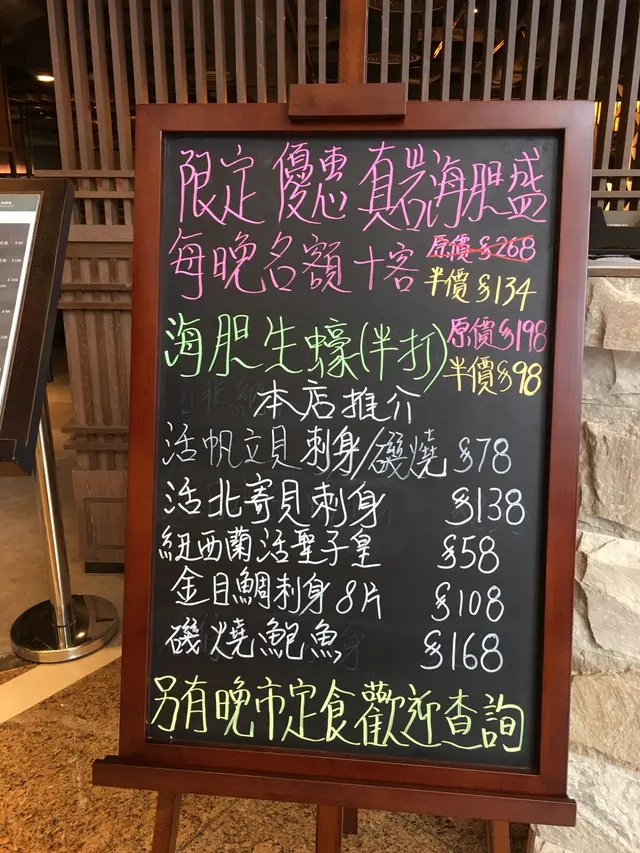 限定優惠 真岩海胆盛
每晚名額十客 原價$268
半價$134
海胆生蠔(半打) 原價$198
半價$98
本店推介
活帆立貝刺身/磯燒 $78
活北寄貝刺身 $138
紐西蘭活聖子皇 $58
金目鯛刺身8片 $108
磯燒鮑魚 $168
另有晚市定食歡迎查詢